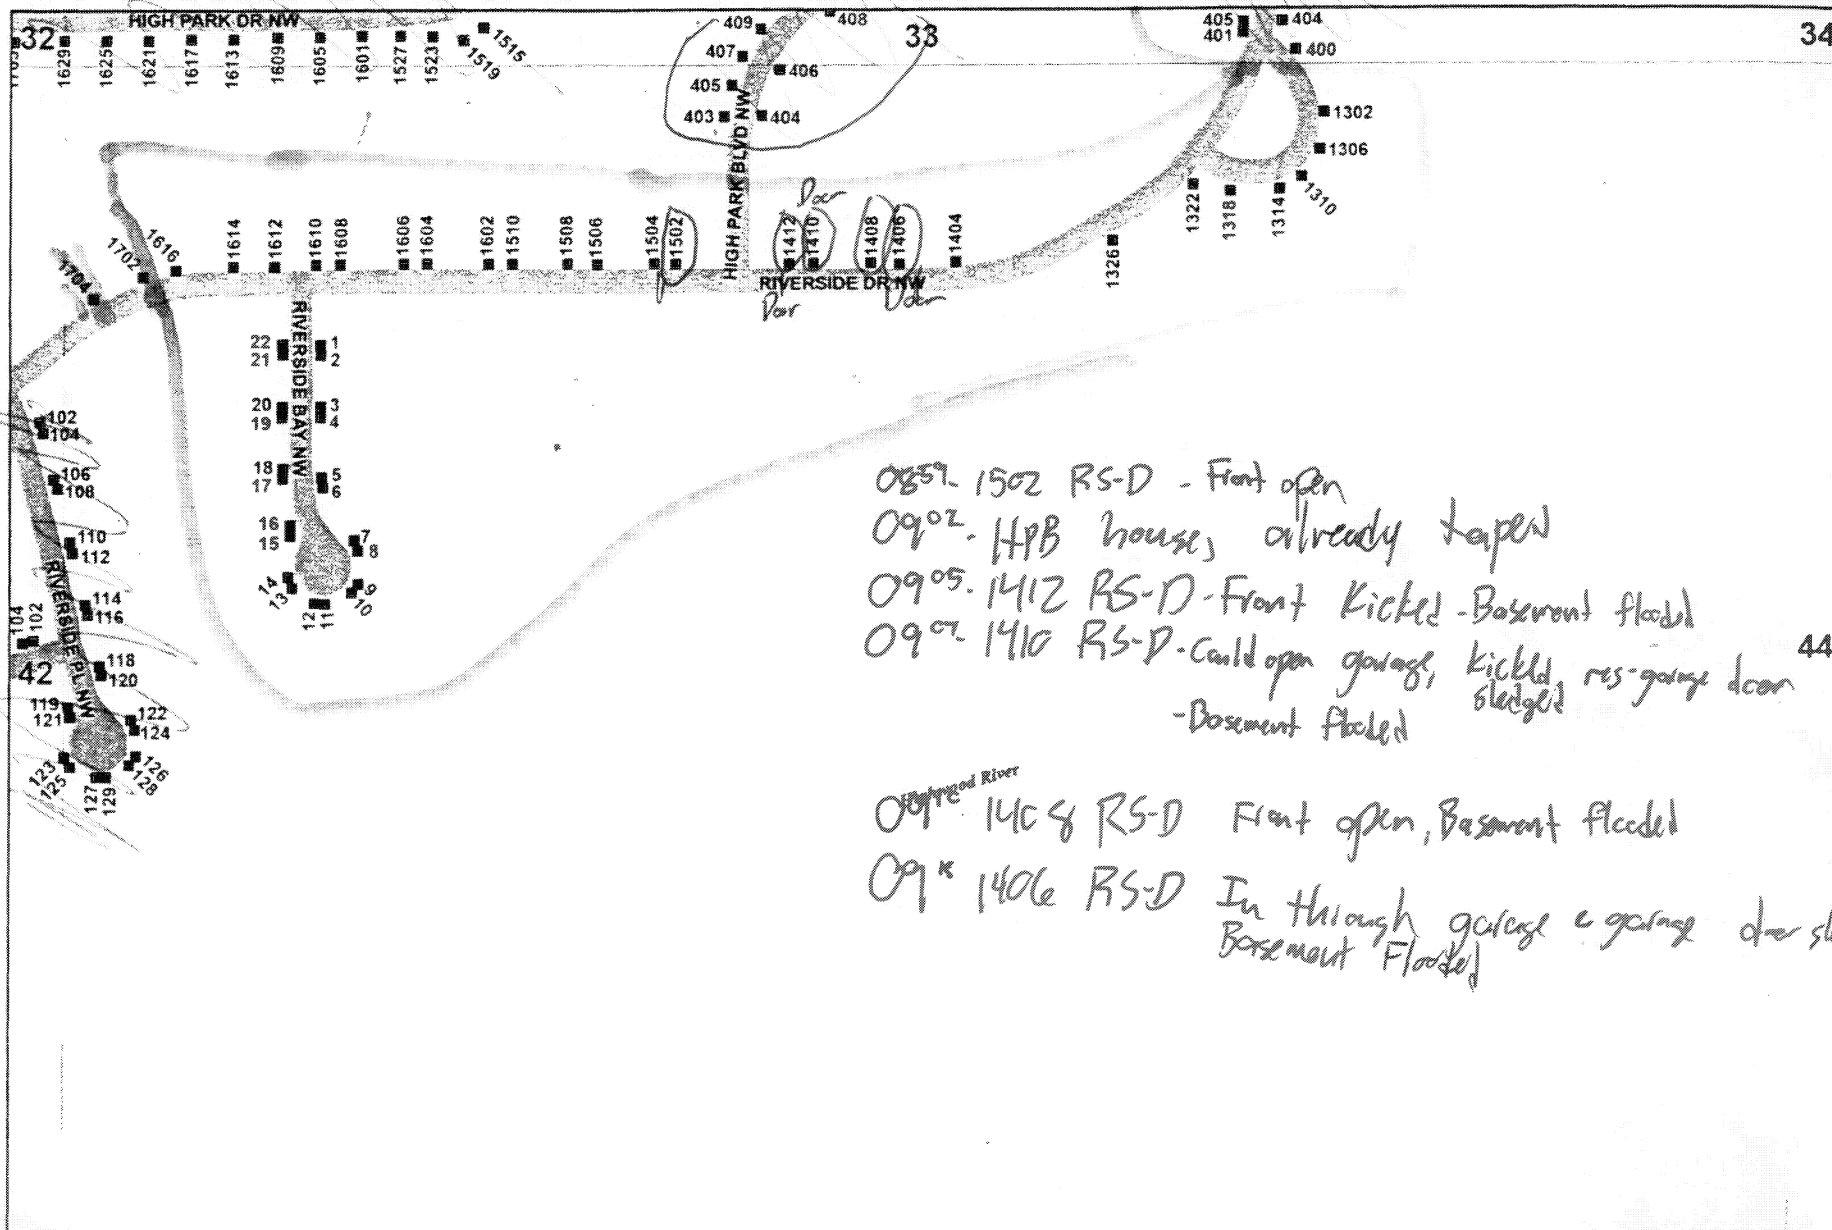 HIGH PARK DR NW
32
33
34
1629
1625
1621
1617
1613
1609
1605
1601
1527
1523
1519
1515
409
408
407
406
405
404
403
HIGH PARK BLVD NW
405
404
401
400
1302
1306
1310
1314
1318
1322
1326
Door
1704
1702
1616
1614
1612
1610
1608
1606
1604
1602
1510
1508
1506
1504
1502
1412
1410
1408
1406
1404
RIVERSIDE DR NW
Door
Door
RIVERSIDE BAY NW
22
21
1
2
20
19
3
4
18
17
5
6
16
15
7
8
14
13
9
10
12
11
102
104
106
108
110
112
RIVERSIDE PL NW
114
116
104
102
42
118
120
119
121
122
124
123
125
126
128
127
129
44
0859- 1502 RS-D - Front open
0902- HPB houses already taped
0905- 1412 RS-D - Front Kicked - Basement flooded
1410 RS-D - Could open garage, kicked, res-garage door
sledged
- Basement flooded
River
1408 RS-D Front open, Basement flooded
1406 RS-D In through garage garage door
Basement Flooded